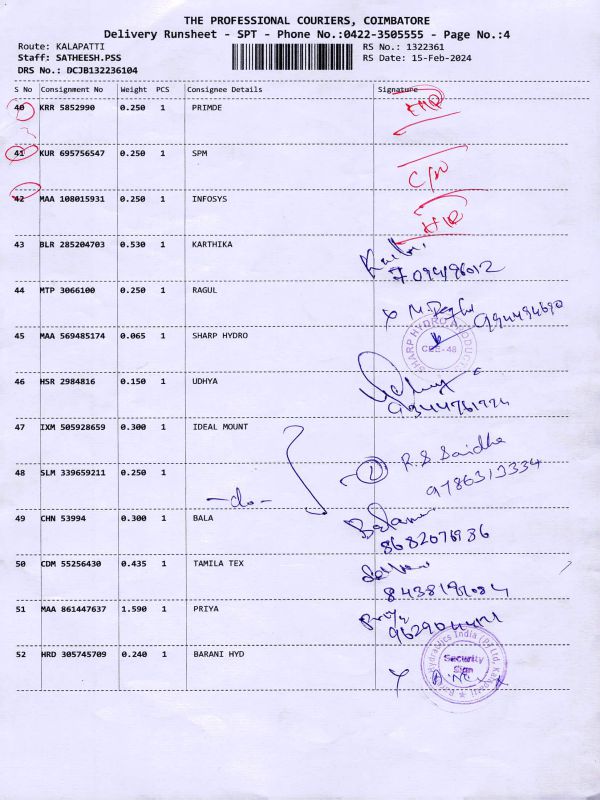 THE PROFESSIONAL COURIERS, COIMBATORE
Delivery Runsheet - SPT - Phone No.:0422-3505555 - Page No.:4
Route: KALAPATTI RS No.: 1322361
Staff: SATHEESH.PSS RS Date: 15-Feb-2024
DRS No.: DCJB132236104
S No Consignment No Weight PCS Consignee Details Signature
40 KRR 5852990 0.250 1 PRIMDE
41 KUR 695756547 0.250 1 SPM
C/N
42 MAA 108015931 0.250 1 INFOSYS
43 BLR 285204703 0.530 1 KARTHIKA
44 MTP 3066100 0.250 1 RAGUL
45 MAA 569485174 0.065 1 SHARP HYDRO
SHARP HYDRO PRODUCTS
CBE-48
46 HSR 2984816 0.150 1 UDHYA
47 IXM 505928659 0.300 1 IDEAL MOUNT
R.S Saidha
48 SLM 339659211 0.250 1
-do-
49 CHN 53994 0.300 1 BALA
50 CDM 55256430 0.435 1 TAMILA TEX
51 MAA 861447637 1.590 1 PRIYA
52 HRD 305745709 0.240 1 BARANI HYD
Hydraulics India (P) Ltd,
Security
Sign